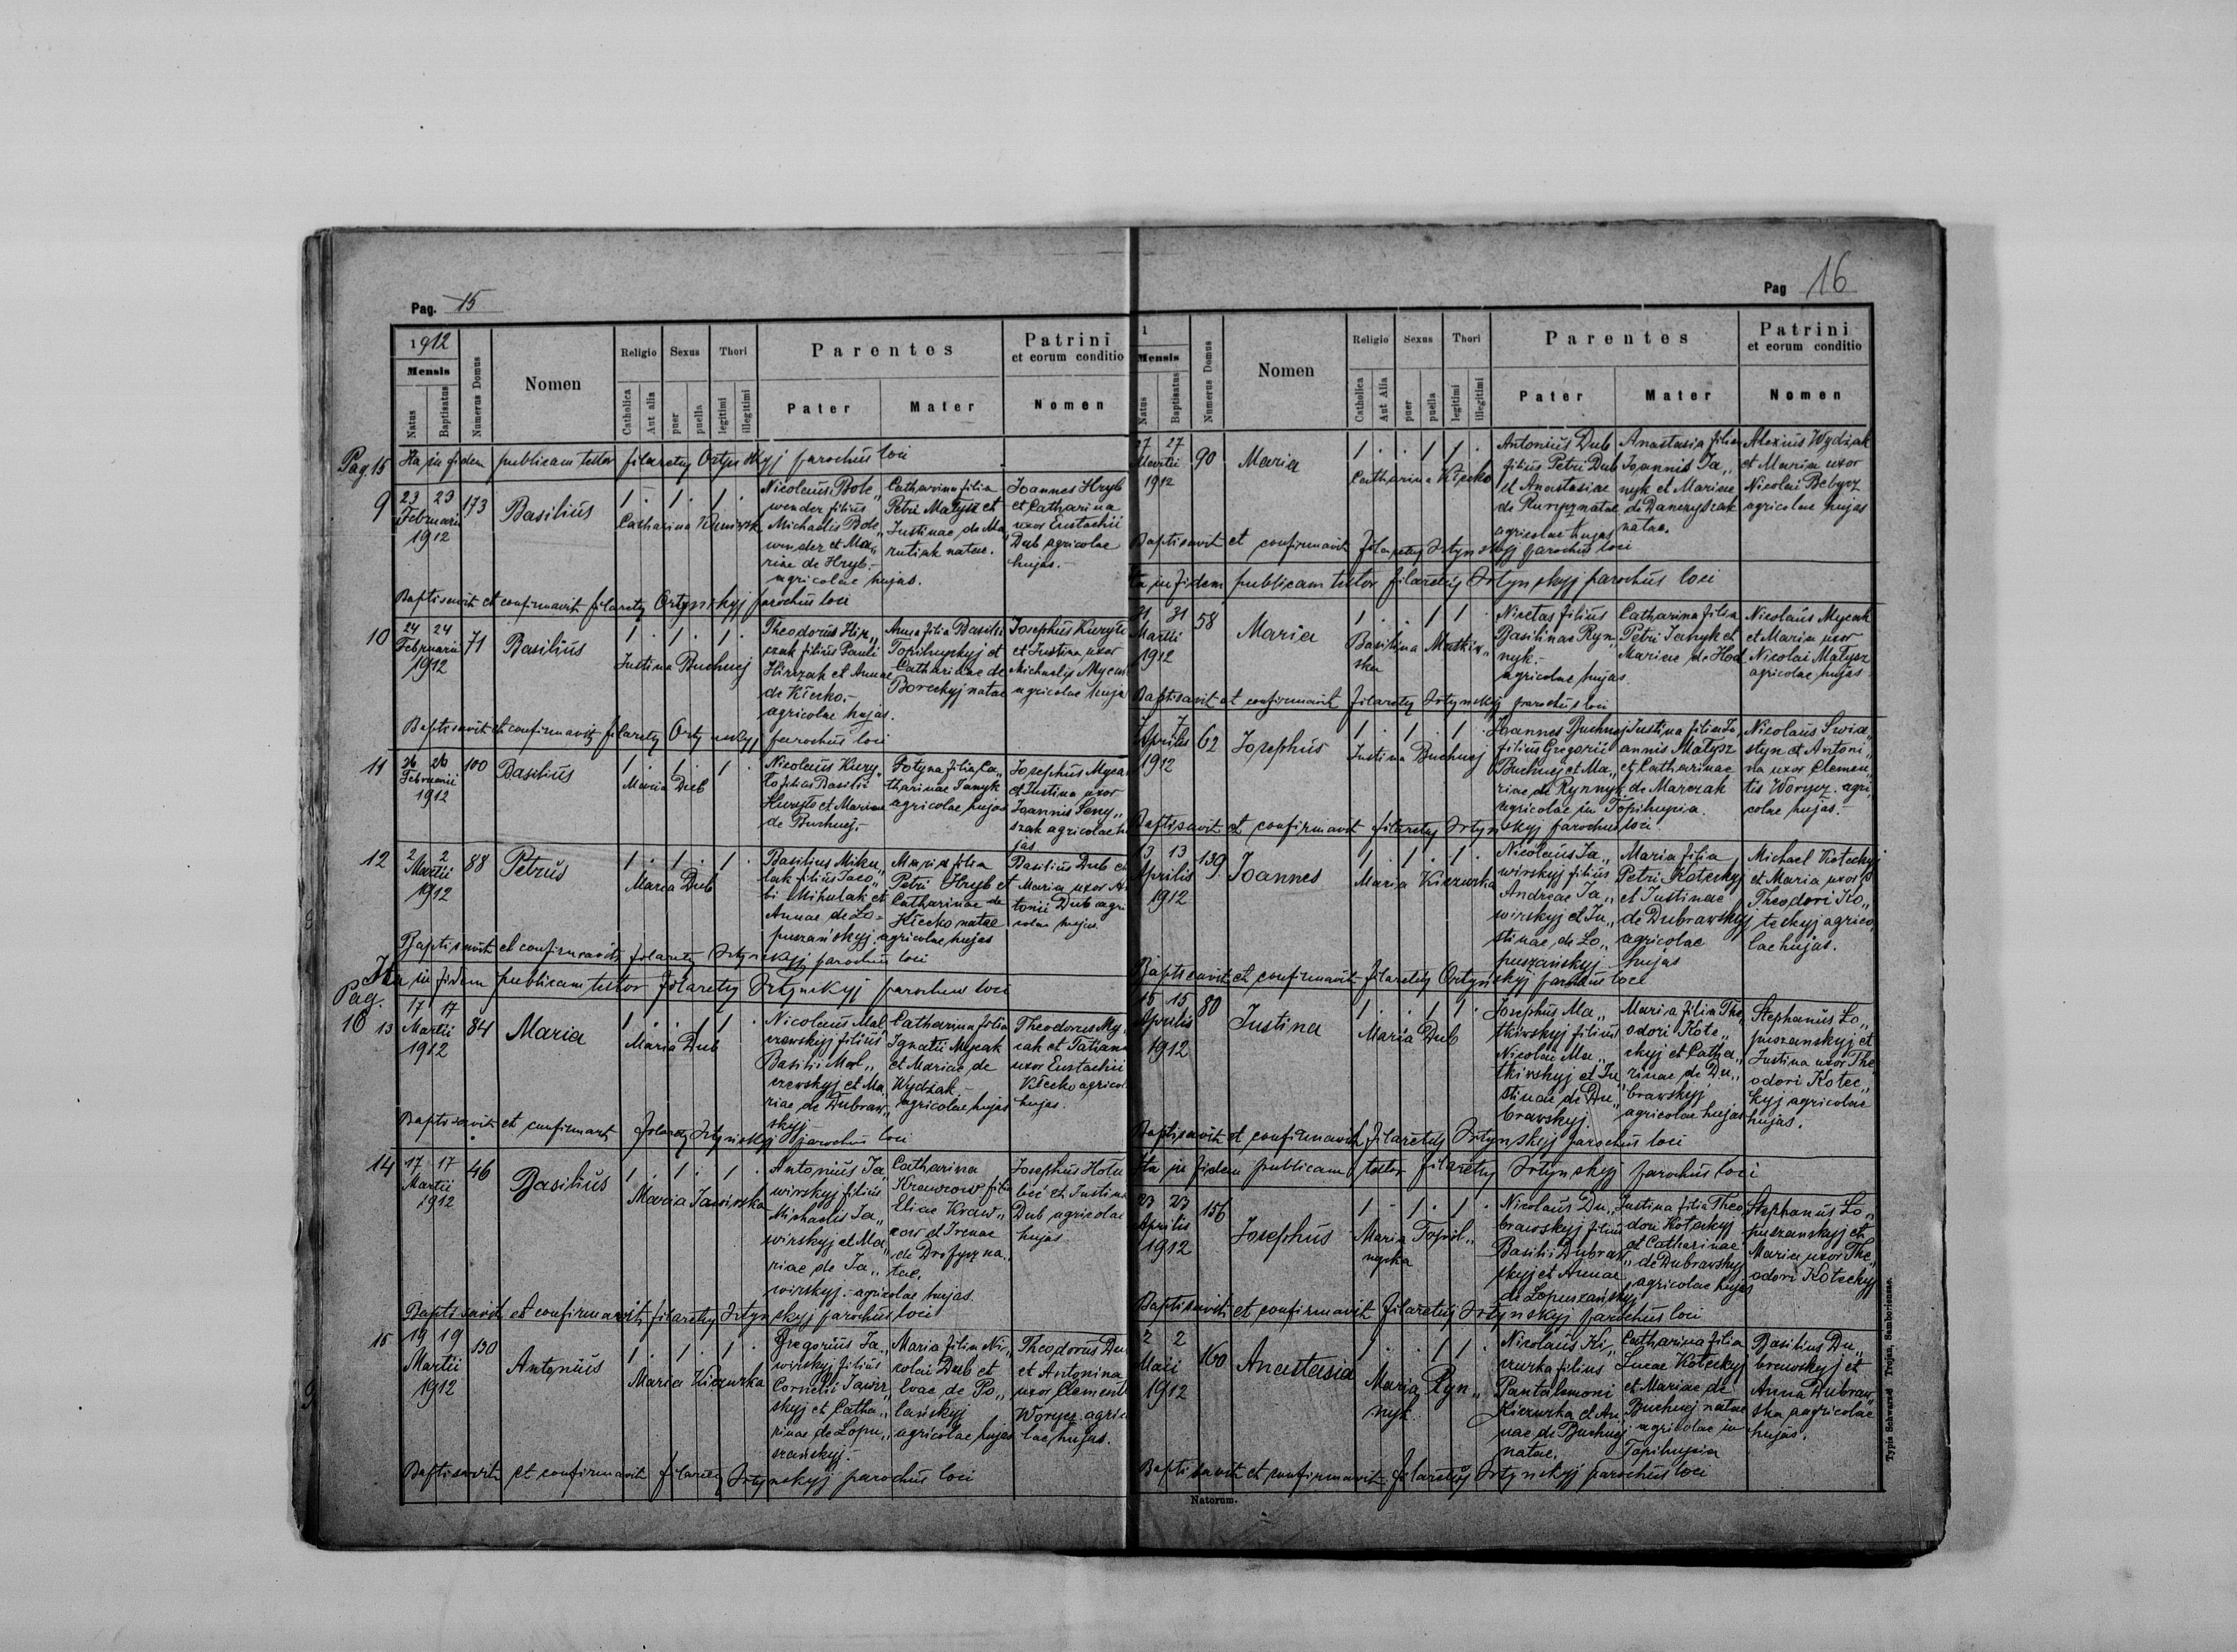 Pag. 15
1912
Mensis
Natus
Baptisatus
Numerus Domus
Nomen
Religio
Catholica
Aut alia
Sexus
puer
puella
Thori
legitimi
illegitimi
Parentes
Pater
Mater
Patrini
et eorum conditio
Nomen
Pag. 15 Ita in fidem publicam testor Filaretus Ortynskyj parochus loci
9
23 23
Februarii
1912
173
Basilius
1 . 1 . 1 .
Catharina
Nicolaus Bole„
wender filius
Michaelis Bole„
wender et Ma„
riae de Hryb.-
agricolae hujas.
Catharina filia
Petri Matysz et
Justinae de Ma
rutiak natae.
Joannes Hryb
et Catharina
uxor Eustachii
Dub agricolae
hujas.-
Baptisavit et confirmavit Filaretus Ortynskyj parochus loci
10
24 24
Februarii
1912
71
Basilius
1 . 1 . 1 .
Justina Buchnej
Theodorus Hir„
czak filius Pauli
Hirczak et Annae
de Klecko.-
agricolae hujas.
Anna filia Basilii
Topilnyckyj et
Catharinae de
Boreckyj natae
Josephus Kuryło
et Justina uxor
Michaelis Mycak
agricolae hujas
Baptisavit et confirmavit Filaretus Ortynskyj parochus loci
11
26 26
Februarii
1912
100
Basilius
1 . 1 . 1 .
Maria Dub
Nicolaus Kury„
ło filius Basilii
Kuryło et Mariae
de Buchnej.-
Fotyna filia Ca„
tharinae Janyk
agricolae hujas
Josephus Mycak
et Justina uxor
Joannis Seny„
szak agricolae hu
jas
12
2 2
Martii
1912
88
Petrus
1 . 1 . 1 .
Maria Dub
Basilius Miku„
lak filius Jaco„
bi Mikulak et
Annae de Lo-
puszańskyj
Maria filia
Petri Hryb et
Catharinae de
Klecko natae
agricolae hujas
Basilius Dub et
Maria uxor An
tonii Dub agri
colae hujas.
Baptisavit et confirmavit Filaretus Ortynskyj parochus loci
Ita in fidem publicam testor Filaretus Ortynskyj parochus loci
Pag.
16
13
17 17
Martii
1912
84
Maria
1 . . 1 1 .
Maria Dub
Nicolaus Mal„
czewskyj filius
Basilii Mal„
czewskyj et Ma„
riae de Dubraw„
skyj-
Catharina filia
Ignatii Mycak
et Mariae de
Wydżak.-
agricolae hujas
Theodorus My„
cak et Tatiana
uxor Eustachii
Klecko agricol
hujas.
Baptisavit et confirmavit Filaretus Ortynskyj parochus loci
14
17 17
Martii
1912
46
Basilius
1 . 1 . 1 .
Maria Jawirska
Antonius Ja„
wirskyj filius
Michaelis Ja„
wirskyj et Ma„
riae de Ja„
wirskyj.- agricolae hujas
Catharina
Krawcow filia
Eliae Kraw„
cow et Irenae
de Drofycz na„
tae.
Josephus Hołu
beć et Justina
Dub agricolae
hujas
Baptisavit et confirmavit Filaretus Ortynskyj parochus loci
15
19 19
Martii
1912
130
Antonius
1 . 1 . 1 .
Maria Kiczurka
Gregorius Ja„
wirskyj filius
Cornelii Jawir
skyj et Catha„
rinae de Lopu„
szańskyj.
Maria filia Ni„
colai Dub et
Evae de Po„
lańskyj
agricolae hujas
Theodorus Du
et Antonina
uxor Clementis
Worycz agrico
lae hujas.
Baptisavit et confirmavit Filaretus Ortynskyj parochus loci
Pag 16
1
Mensis
Natus
Baptisatus
Numerus Domus
Nomen
Religio
Catholica
Aut Alia
Sexus
puer
puella
Thori
legitimi
illegitimi
Parentes
Pater
Mater
Patrini
et eorum conditio
Nomen
27 27
Martii
1912
90
Maria
1 . . 1 1 .
Catharina Klecko
Antonius Dub
filius Petri Dub
et Anastasiae
de natae
agricolae hujas
Anastasia filia
Joannis Ja„
nyk et Mariae
de Danczyszak
natae.
Alexius Wydżak
et Maria uxor
Nicolai Bebysz
agricolae hujas
Baptisavit et confirmavit Filaretus Ortynskyj parochus loci
Ita in fidem publicam testor Filaretus Ortynskyj parochus loci
31 31
Martii
1912
58
Maria
1 . . 1 1 .
Basilina Matkiw„
ska
Nicetas filius
Basilinae Ryn„
nyk.-
agricolae hujas.
Catharina filia
Petri Janyk et
Mariae de Hod
Nicolaus Mycak
et Maria uxor
Nicolai Matysz
agricolae hujas
Baptisavit et confirmavit Filaretus Ortynskyj parochus loci
7 7
Aprilis
1912
62
Josephus
1 . 1 . 1 .
Justina Buchnej
Joannes Buchnej
filius Gregorii
Buchnej et Ma„
riae de Rynnyk
agricolae in Topilnycia.
Justina filia Jo„
annis Matysz
et Catharinae
de Marczak
Nicolaus Swia„
styn et Antoni„
na uxor Clemen„
tis Worycz. agri„
colae hujas.-
Baptisavit et confirmavit Filaretus Ortynskyj parochus loci.
13 13
Aprilis
1912
139
Joannes
1 . 1 . 1 .
Maria Kiczurka
Nicolaus Ja„
wirskyj filius
Andreae Ja„
wirskyj et Ju„
stinae de Lo„
puszańskyj
Maria filia
Petri Koteckyj
et Justinae
de Dubrawskyj
agricolae
hujas
Michael Koteckyj
et Maria uxor
Theodori Ko„
teckyj agrico„
lae hujas.
Baptisavit et confirmavit Filaretus Ortynskyj parochus loci
15 15
Aprilis
1912
80
Justina
1 . . 1 1 .
Maria Dub
Josephus Ma„
tkiwskyj filius
Nicolai Ma„
tkiwskyj et Ju„
stinae de Du„
brawskyj.
Maria filia The„
odori Kote„
ckyj et Catha„
rinae de Du„
brawskyj
agricolae hujas
Stephanus Lo„
puszanskyj et
Justina uxor The
odori Kotec„
kyj agricolae
hujas.
Baptisavit et confirmavit Filaretus Ortynskyj parochus loci
Ita in fidem publicam testor Filaretus Ortynskyj parochus loci
23 23
Aprilis
1912
156
Josephus
1 . 1 . 1 .
Maria Topil„
nycka
Nicolaus Du„
brawskyj filius
Basilii Dubraw„
skyj et Annae
de Lopuszańskyj
Justina filia Theo„
dori Koteckyj
et Catharinae
de Dubrawskyj
agricolae hujas
Stephanus Lo„
puszanskyj et
Maria uxor The„
odori Koteckyj
Baptisavit et confirmavit Filaretus Ortynskyj parochus loci
2 2
Maii
1912
160
Anastasia
1 . . 1 1 .
Maria Ryn„
nyk.
Nicolaus Ki„
czurka filius
Pantalemoni
Kiczurka et An„
nae de Buchnej
natae.
Catharina filia
Lucae Koteckyj
et Mariae de
Buchnej natae
agricolae in
Topilnycia
Basilius Du„
brawskyj et
Anna Dubraw„
ska agricolae
hujas.
Baptisavit et confirmavit Filaretus Ortynskyj parochus loci
Natorum.
Typis Schwarz & Trojan, Samboriensae.